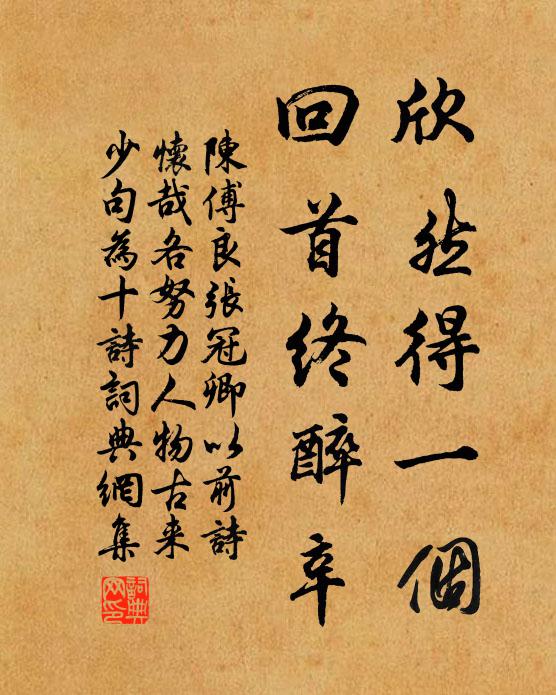 欣然得一個
回首終醉辛
陳傅良張冠卿以前詩
懷哉各努力人物古来
少句為十詩詞典網集
詞典網印